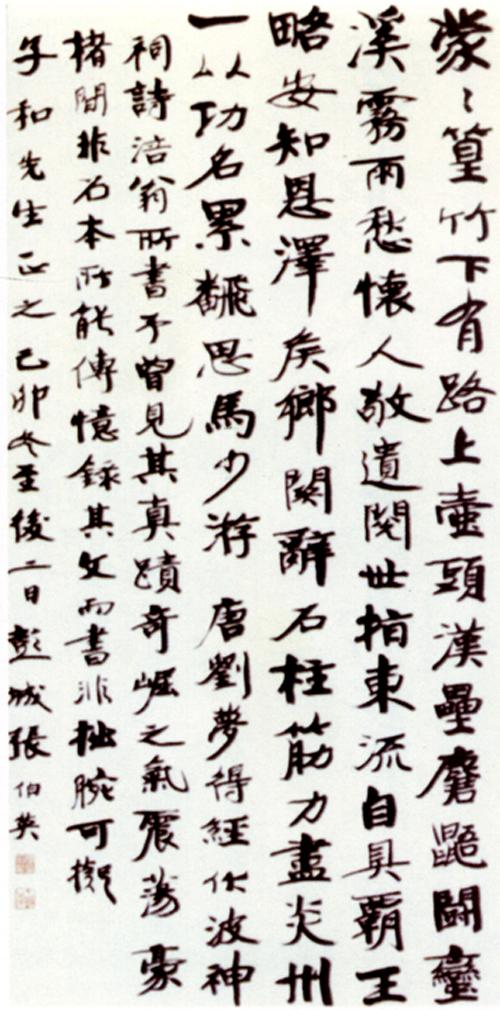 蒙〻篁竹下有路上壺頭漢壘麏鼯鬭蠻
溪霧雨愁懷人敬遺閱世指東流自具霸王
略安知恩澤矦鄉関辭石柱筋力盡炎州
一以功名累飜思馬少游 唐劉夢得經伏波神
祠詩涪翁所書予曾見其真蹟奇崛之氣震蕩豪
楮間非石本所能傳憶錄其文而書非拙腕可擬
子和先生正之己卯冬至後二日彭城張伯英